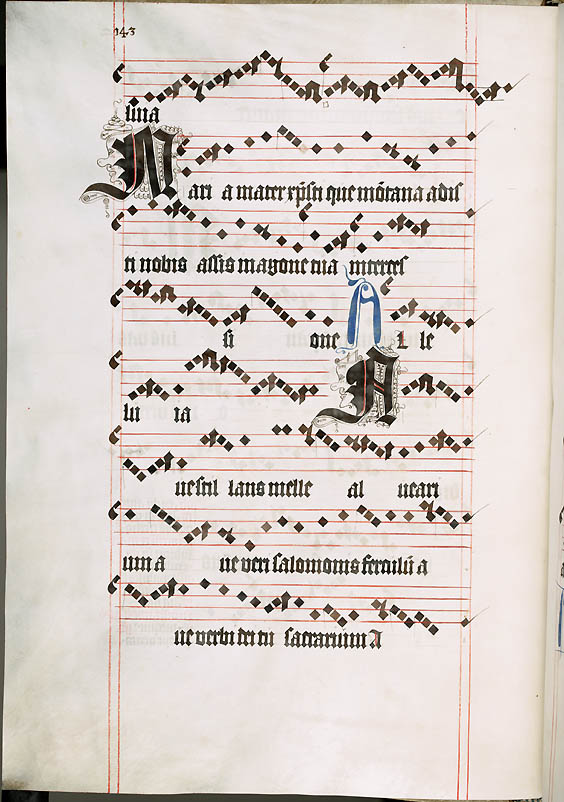 143
sina
Mari a mater xp̄sti que mōtana adis
ti nobis assis magone tua interces
si one Al le
lu ia A
ue stil lans melle al uean
um a ue veri salomonis ferculū a
ue verbi dei tu sacrarium A